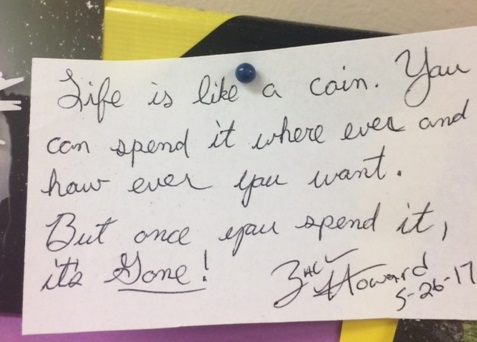 Life is like a coin. You
can spend it where ever and
how ever you want.
But once you spend it,
it's Gone!
Zac Howard
5-26-17